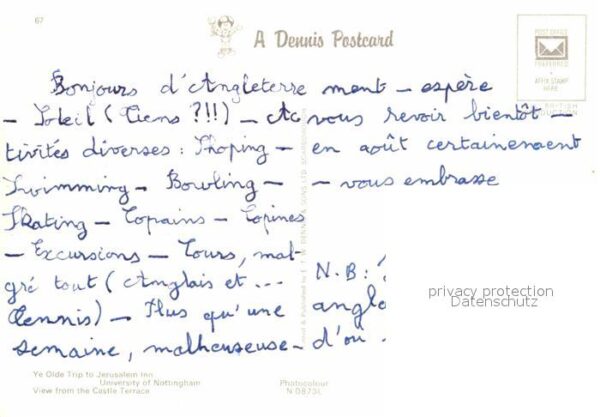 67
A Dennis Postcard
POST OFFICE
PREFERRED
AFFIX STAMP
HERE
Bonjours d'Angleterre
- Soleil (Tiens ?!!) - Ac
tivités diverses : Shoping -
Swimming - Bowling -
Skating - Copains - Copines
- Excursions - Cours, mal-
gré tout (Anglais et ...
Tennis) - Plus qu'une
semaine, malheureuse-
ment - espère
vous revoir bientôt -
en août certainement
- vous embrasse
N.B :
anglo
d'où
privacy protection
Datenschutz
Ye Olde Trip to Jerusalem Inn
University of Nottingham
View from the Castle Terrace
Photocolour
N.0873L